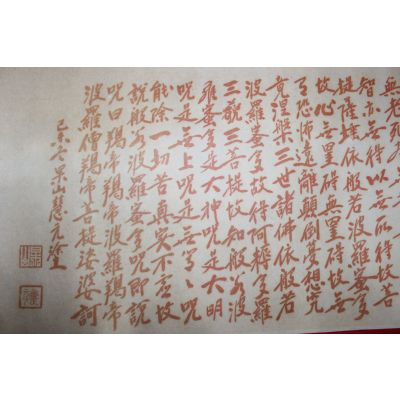 無老死盡
智亦無得以無所得故菩
提薩埵依般若波羅蜜多
故心無罣礙無罣礙故無
有恐怖遠離顛倒夢想究
竟涅槃三世諸佛依般若
波羅蜜多故得阿耨多羅
三藐三菩提故知般若波
羅蜜多是大神咒是大明
咒是無上咒是無等等咒
能除一切苦真實不虛故
說般若波羅蜜多咒即說
咒曰羯帝羯帝波羅羯帝
波羅僧羯帝菩提薩婆訶